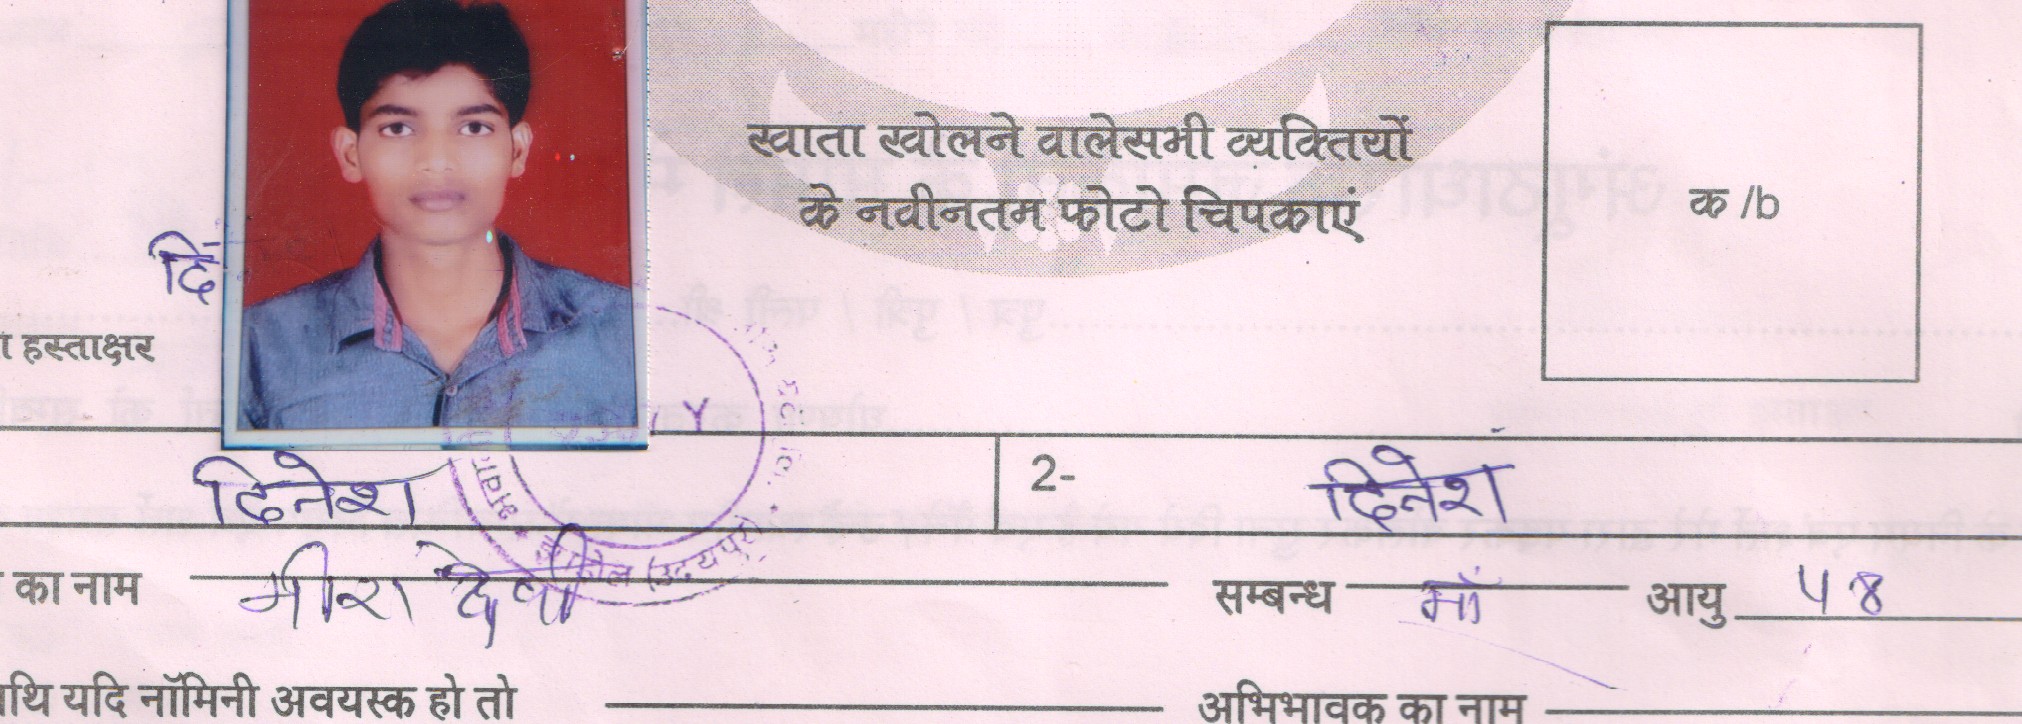 खाता खोलने वालेसभी व्यक्तियों
के नवीनतम फोटो चिपकाएं
क /b
दि
हस्ताक्षर
दिनेश 2- दिनेश
का नाम मीरा देवी सम्बन्ध माँ आयु 48
यदि नॉमिनी अवयस्क हो तो अभिभावक का नाम
(उदयपुर)